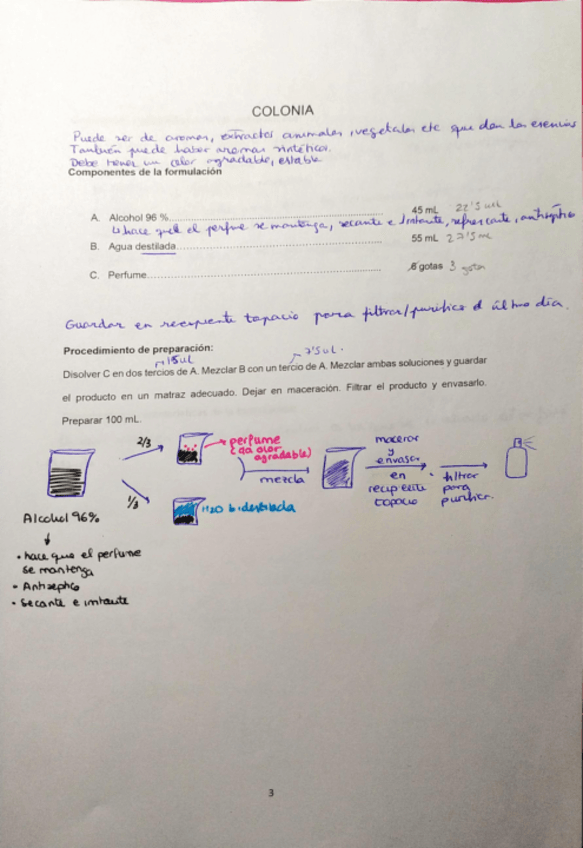 COLONIA
Puede ser de aromas, extractos animales, vegetales etc que dan las esencias
También puede haber aromas sintéticos.
Debe tener un olor agradable, estable
Componentes de la formulación
A. Alcohol 96 % 45 mL 22'5 mL
hace que el perfume se mantenga, secante e irritante, refrescante, antiséptico
B. Agua destilada 55 mL 27'5 mL
C. Perfume 6 gotas 3 gotas
Guardar en recipiente topacio para filtrar/purificar el último día.
Procedimiento de preparación:
15 mL 7'5 mL
Disolver C en dos tercios de A. Mezclar B con un tercio de A. Mezclar ambas soluciones y guardar
el producto en un matraz adecuado. Dejar en maceración. Filtrar el producto y envasarlo.
Preparar 100 mL.
2/3
perfume
(da olor
agradable)
mezcla
macerar
y
envasar
en
recipiente
topacio
filtrar
para
purificar.
1/3
H2O bidestilada
Alcohol 96%
• hace que el perfume
se mantenga
• Antiséptico
• Secante e irritante
3